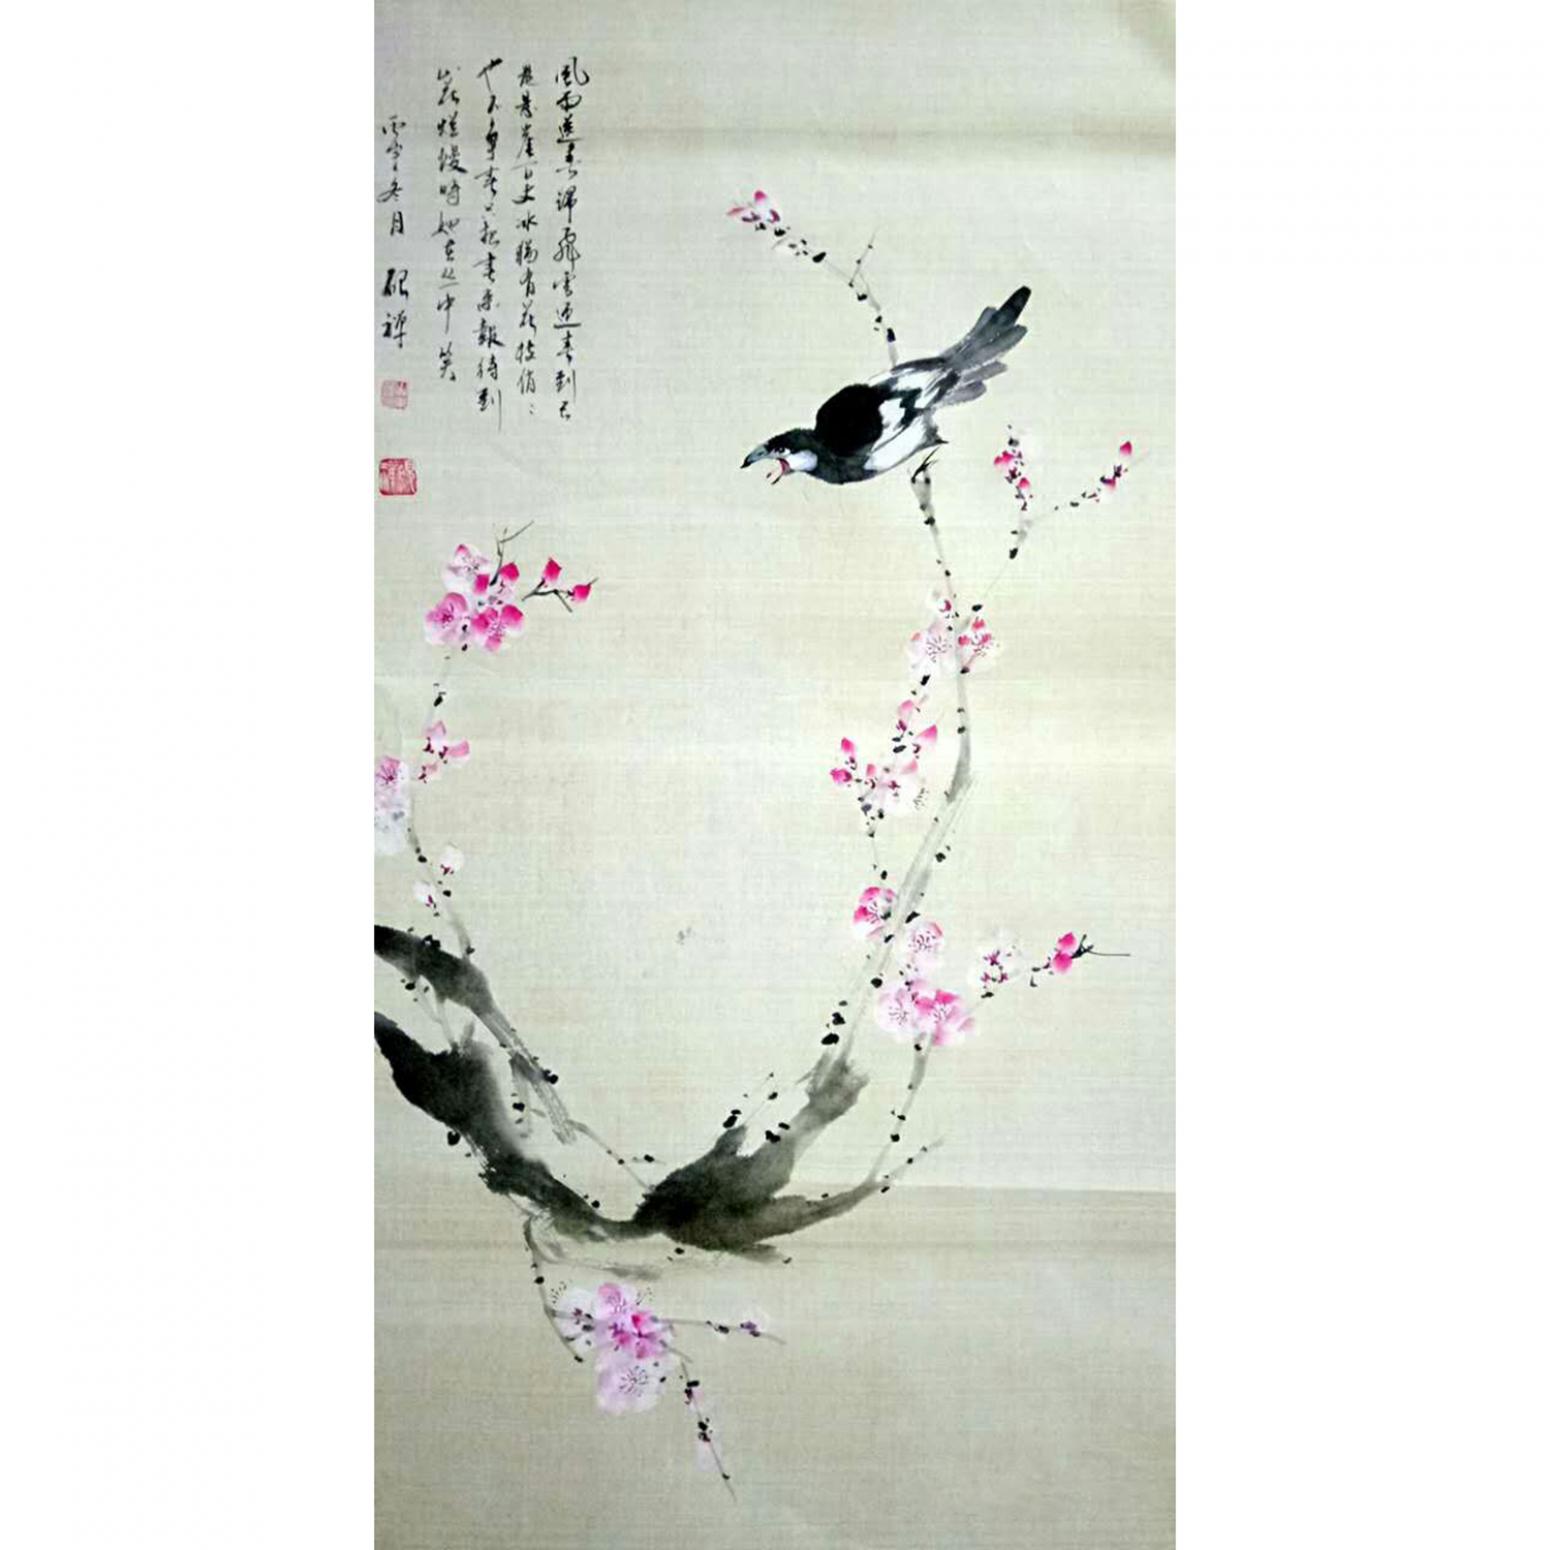 風雨送春歸飛雪迎春到已
是懸崖百丈冰猶有花枝俏〻
也不爭春只把春來報待到
山花爛熳時她在丛中笑
丙冬月